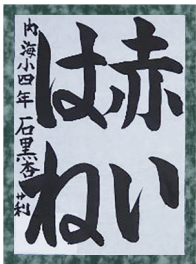 赤い
はね
内海小四年 石黒杏莉